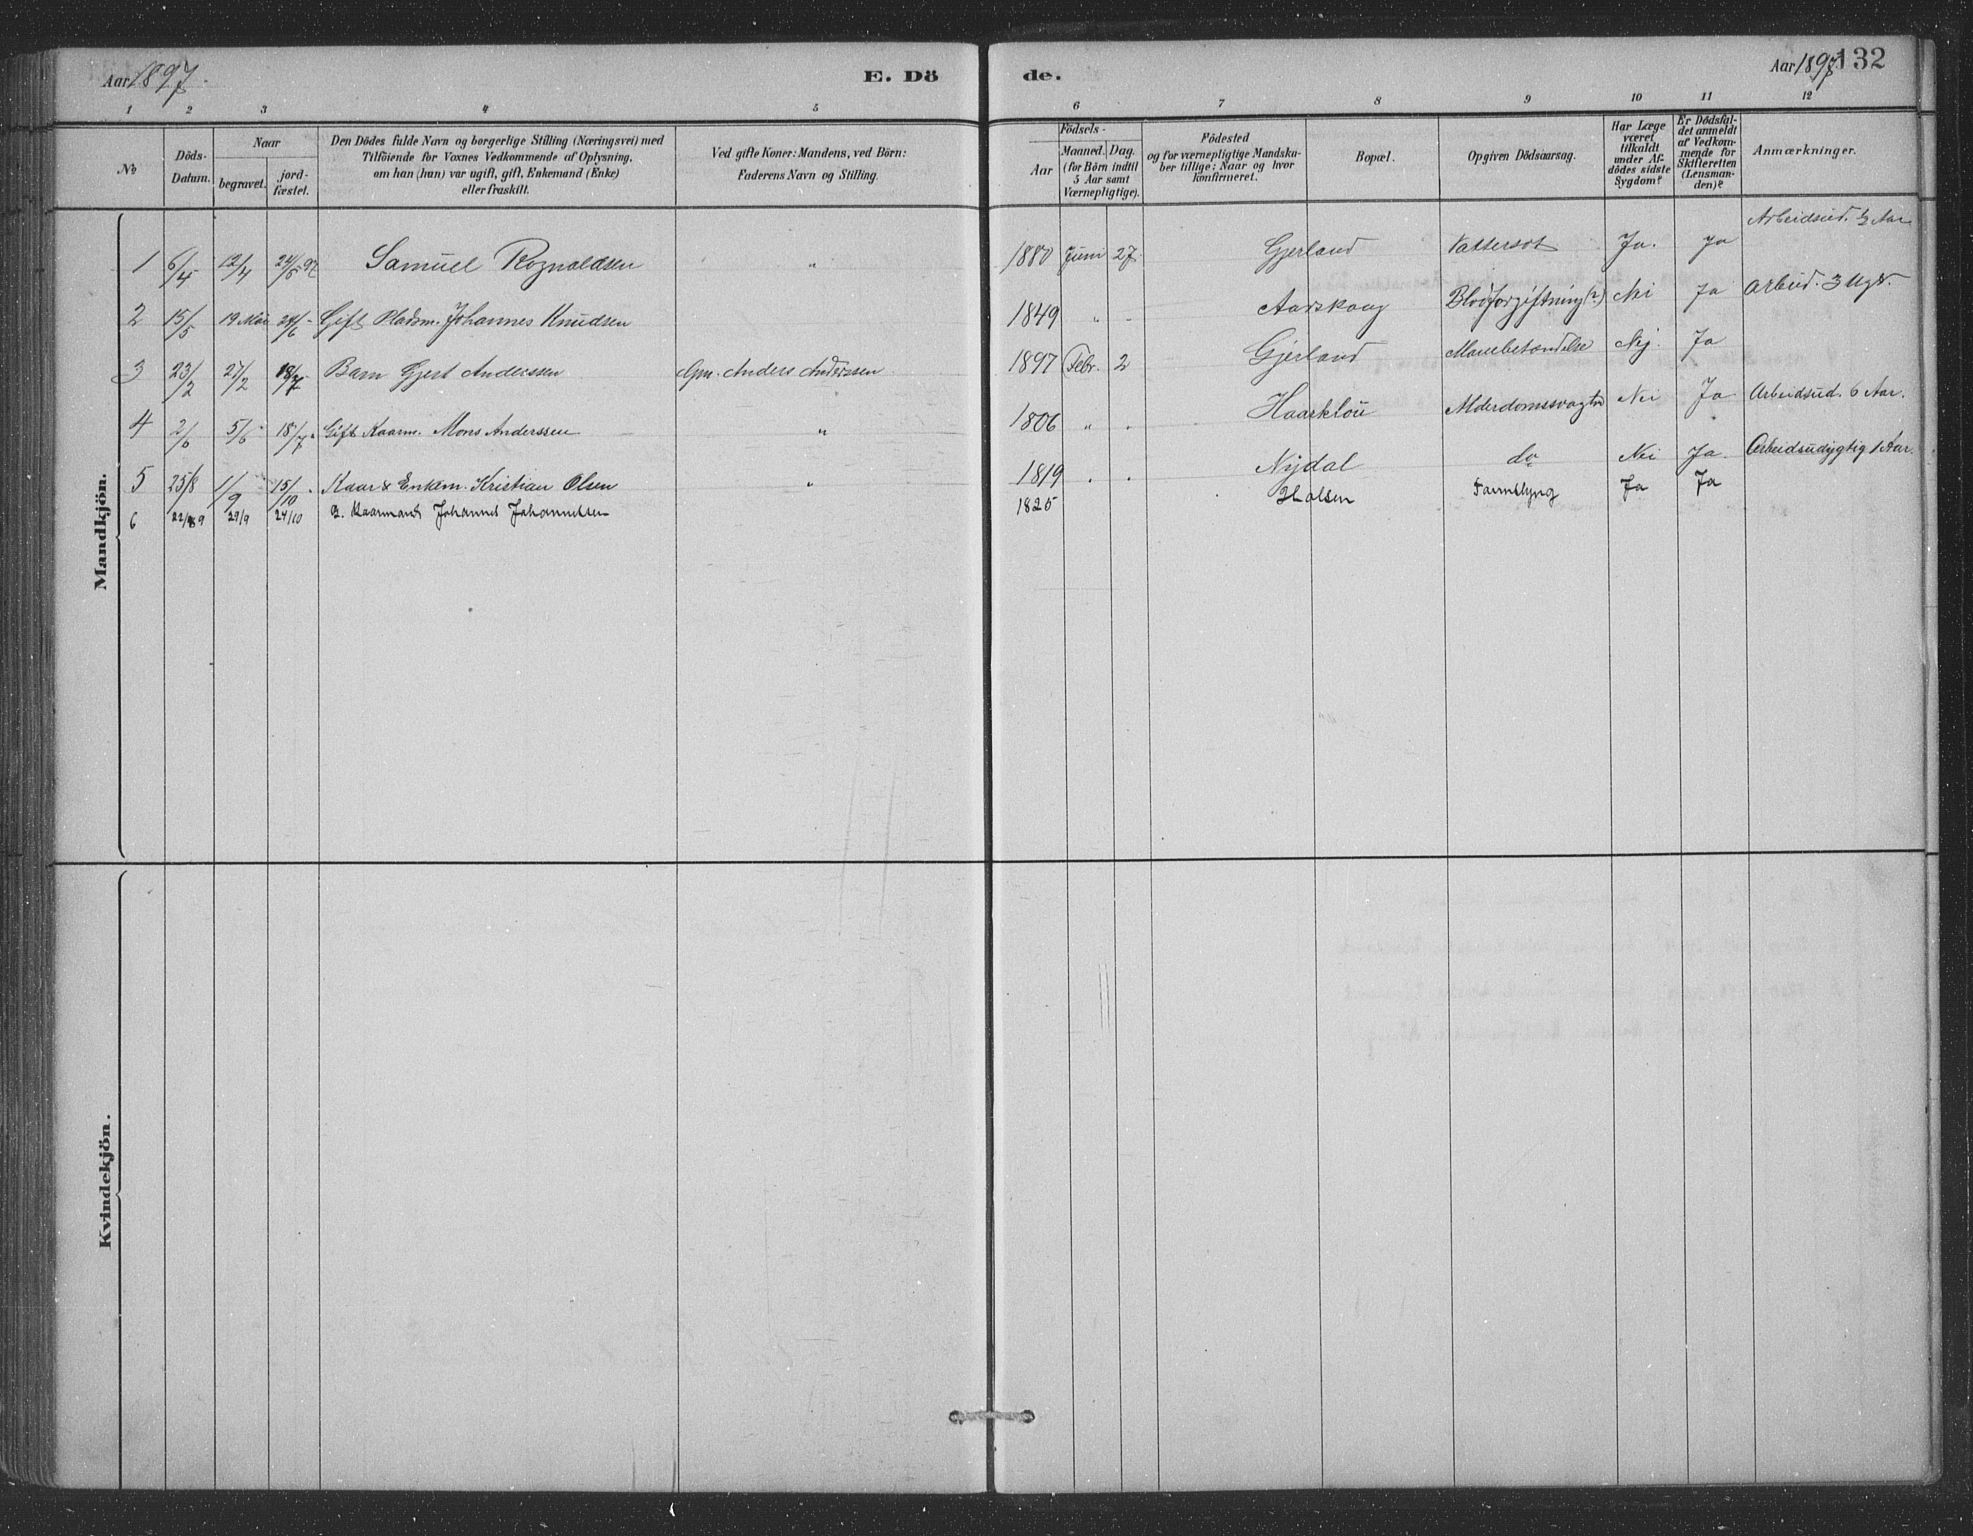 Aar 1897.
E. Dö
de.
Aar 1897
132
1 2 3 4 5 6 7 8 9 10 11 12
No
Döds-
Datum.
Naar
begravet.
jord-
fæstet.
Den Dödes fulde Navn og borgerlige Stilling (Næringsvei) med
Tilföiende for Voxnes Vedkommende af Oplysning,
om han (hun) var ugift, gift, Enkemand (Enke)
eller fraskilt.
Ved gifte Koner: Mandens, ved Börn:
Faderens Navn og Stilling.
Födsels-
Aar
Maaned. Dag.
(for Börn indtil
5 Aar samt
Værnepligtige).
Födested
og for værnepligtige Mandska-
ber tillige: Naar og hvor
konfirmeret.
Bopæl.
Opgiven Dödsaarsag.
Har Læge
været
tilkaldt
under Af-
dödes sidste
Sygdom?
Er Dödsfal-
det anmeldt
af Vedkom-
mende for
Skifteretten
(Lensman-
den)?
Anmærkninger.
Mandkjön.
1 6/4 12/4 24/6 97 Samuel Rognaldsen " 1880 Juni 27 Gjerland Vattersot Ja. Ja Arbeidsud. 1/2 Aar
2 15/5 19 Mai 24/6 Gift Pladsm. Johannes Knudsen 1849 " " Aarskoog Blodforgiftning (?) Nei Ja Arbeid. 3 Ugr.
3 23/2 27/2 18/7 Barn Gjert Anderssen Gm. Anders Anderssen 1897 Febr. 2 Gjerland Mavebetændelse Nej. Ja
4 2/6 5/6 18/7 Gift Kaarm. Mons Anderssen " 1806 " " Haarklou Alderdomssvaghed Nei Ja Arbeidsud. 6 Aar.
5 25/8 1/9 15/10 Kaar & Enkem. Kristian Olsen " 1819 " " Nydal do Nei Ja. Arbeidsudygtig 1 Aar.
6 22/9 29/9 24/10 G. Kaarmand Johannes Johannessen 1825 Holsen Tarmslyng Ja Ja
Kvindekjön.